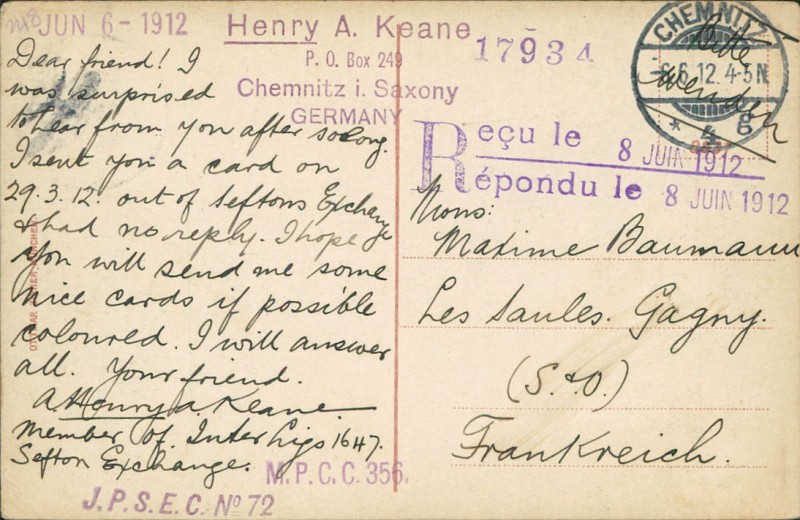 JUN 6 - 1912
Henry A. Keane
P. O. Box 249
Chemnitz i. Saxony
GERMANY
17934
CHEMNITZ
6.6.12. 4-5N
* 4 g
Bitte
wenden
Dear friend! I
was surprised
to hear from you after so long.
I sent you a card on
29.3.12. out of Seftons Exchange
& had no reply. I hope
you will send me some
nice cards if possible
coloured. I will answer
all. Your friend.
Henry A. Keane
member of. Inter Ligo 1647.
Sefton Exchange.
M.P.C.C. 356.
J.P.S.E.C. No 72
Reçu le 8 JUIN 1912
Répondu le 8 JUIN 1912
Mons:
Maxime Baumann
Les Saules. Gagny.
(S.&O.)
Frankreich.